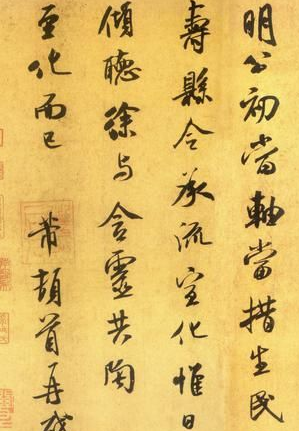 明公初當軸當措生民
壽縣令承流宣化惟日
傾聽徐与含靈共陶
至化而已 芾頓首再